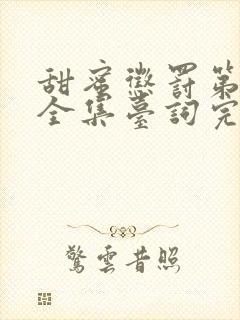 甜蜜懲罰第
全集臺詞完
驚雲昔照